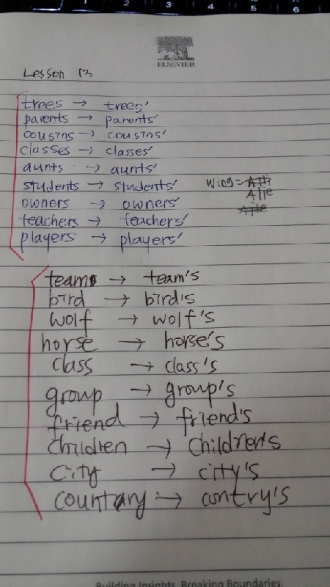 ELSEVIER
Lesson 13
trees → trees'
parents → parents'
cousins → cousins'
classes → classes'
aunts → aunts'
students → students'
owners → owners'
teachers → teachers'
players → players'
wing =
Alle
team → team's
bird → bird's
wolf → wolf's
horse → horse's
class → class's
group → group's
friend → friend's
children → children's
city → city's
country → contry's
Building Insights. Breaking Boundaries.